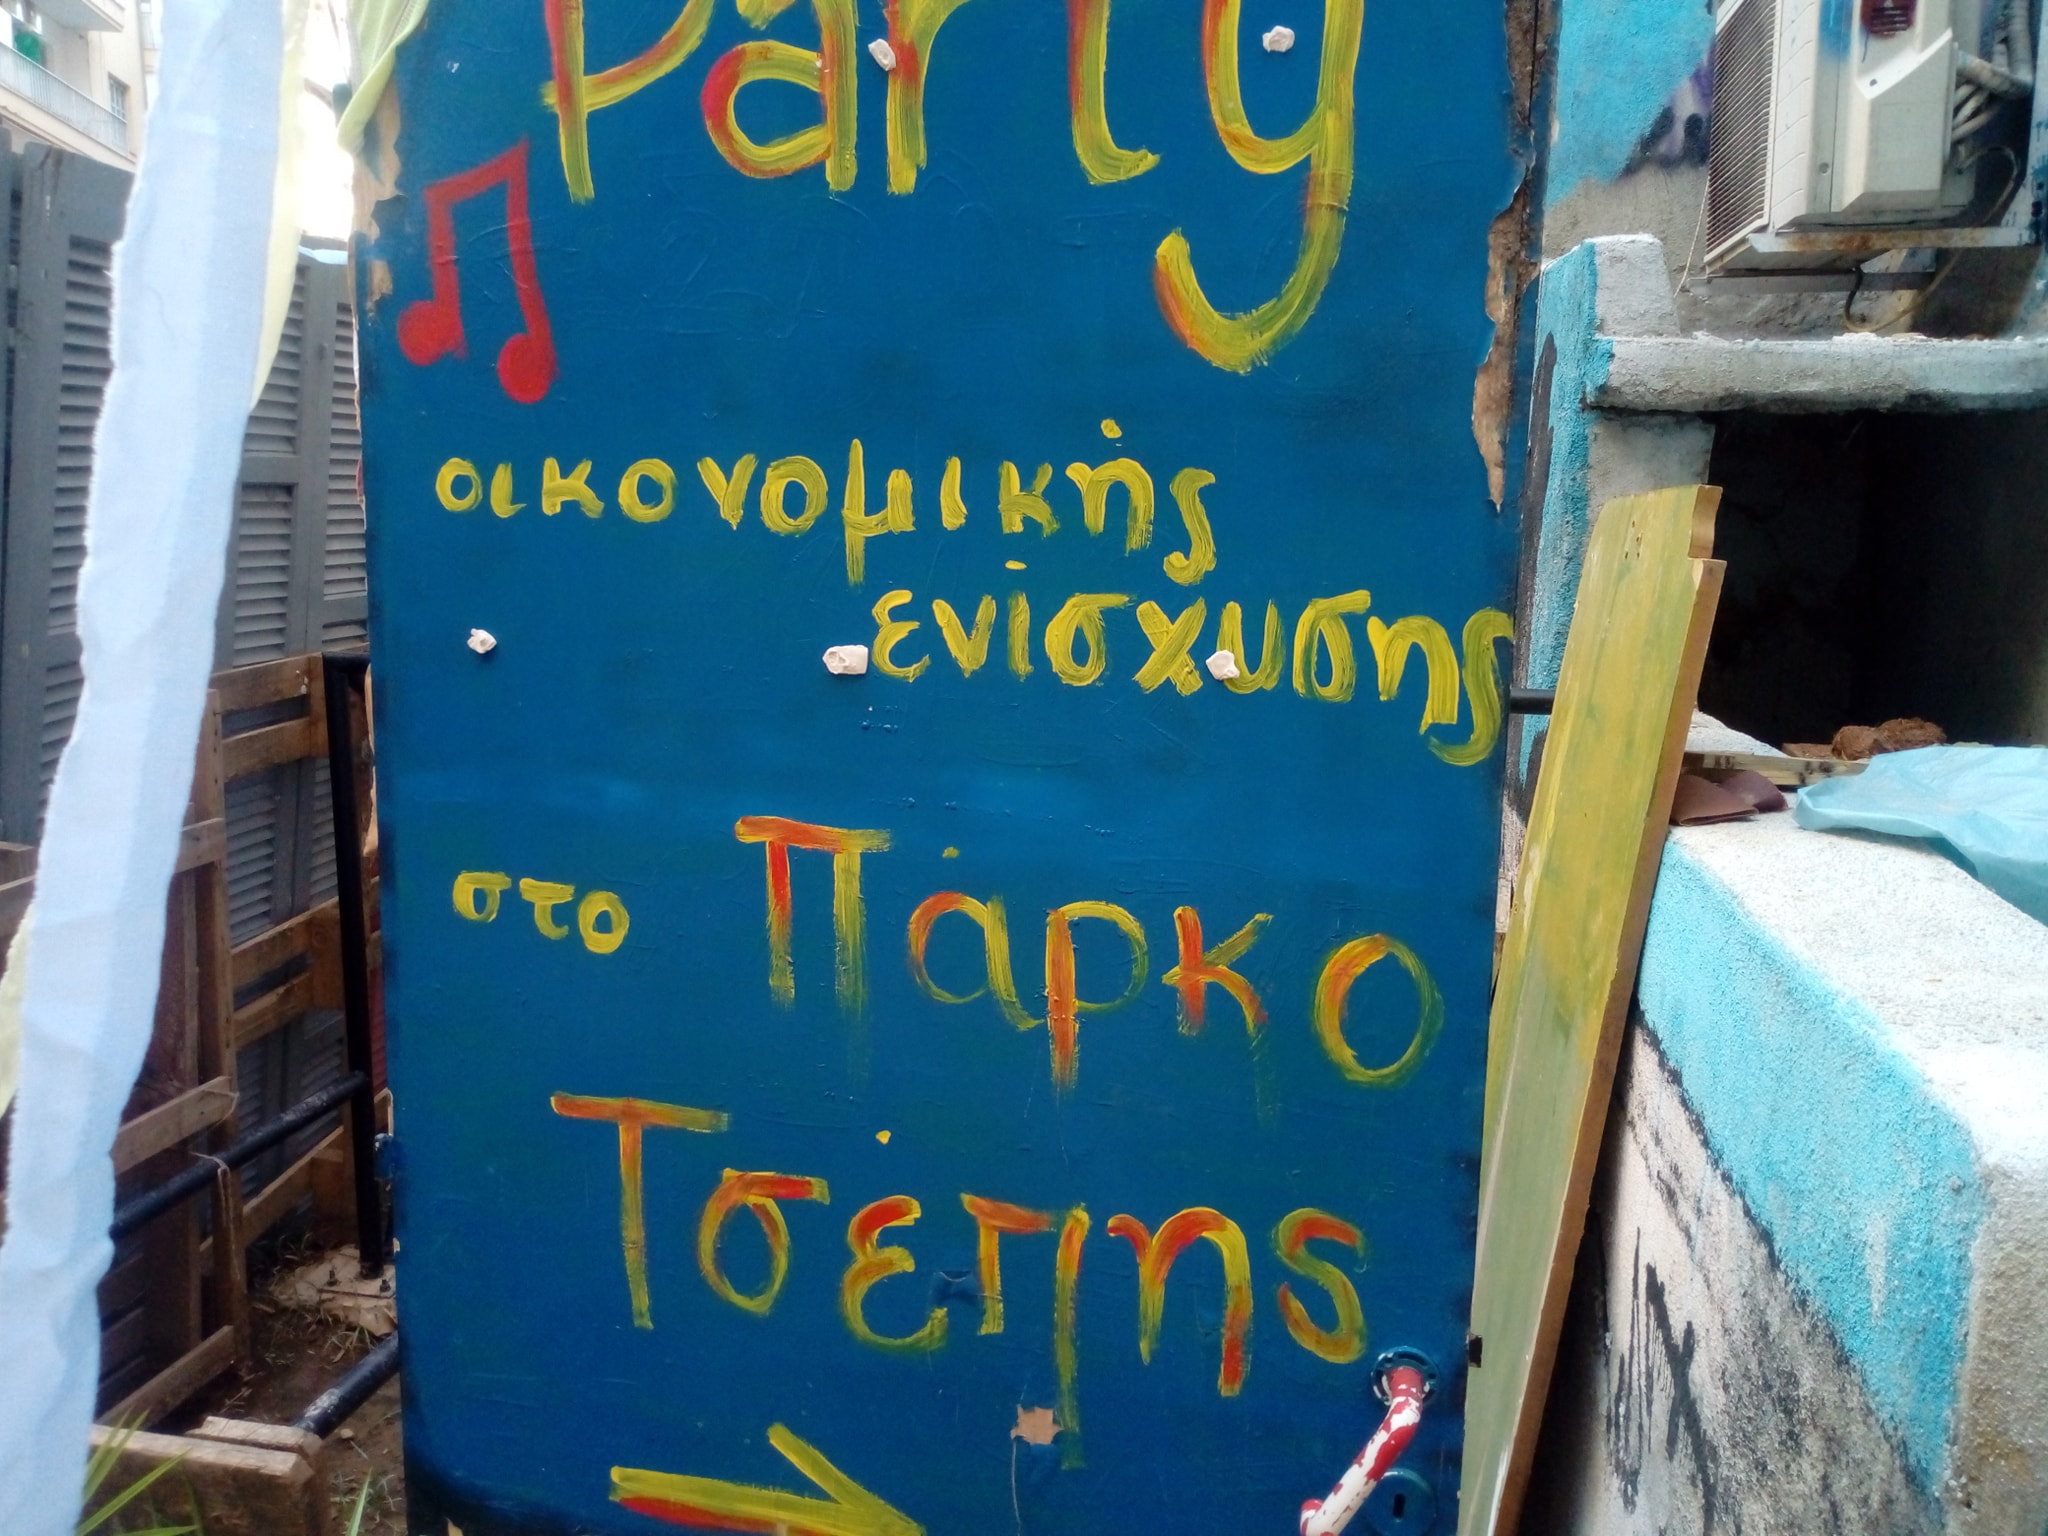 Party
οικονομικής
ενίσχυσης
στο Πάρκο
Τσέπης